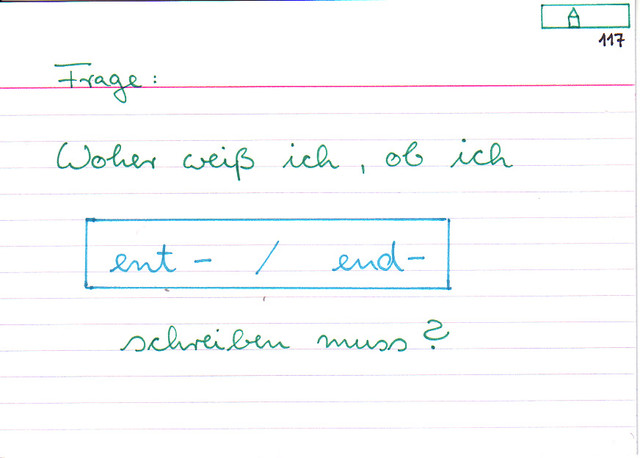 A
117
Frage:
Woher weiß ich, ob ich
ent- / end-
schreiben muss?